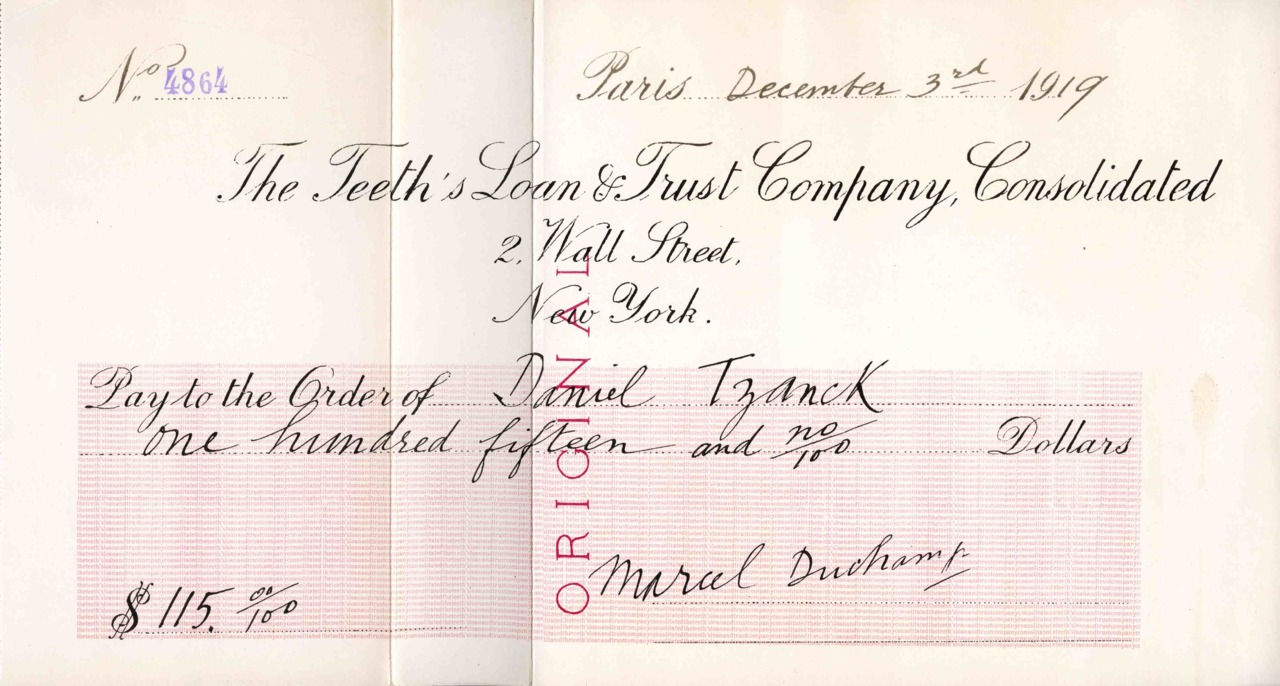 No. 4864
Paris December 3rd 1919
The Teeth's Loan & Trust Company, Consolidated
2, Wall Street,
New York.
ORIGINAL
Pay to the Order of Daniel Tzanck
one hundred fifteen and no/100 Dollars
Marcel Duchamp
$ 115. 00/100